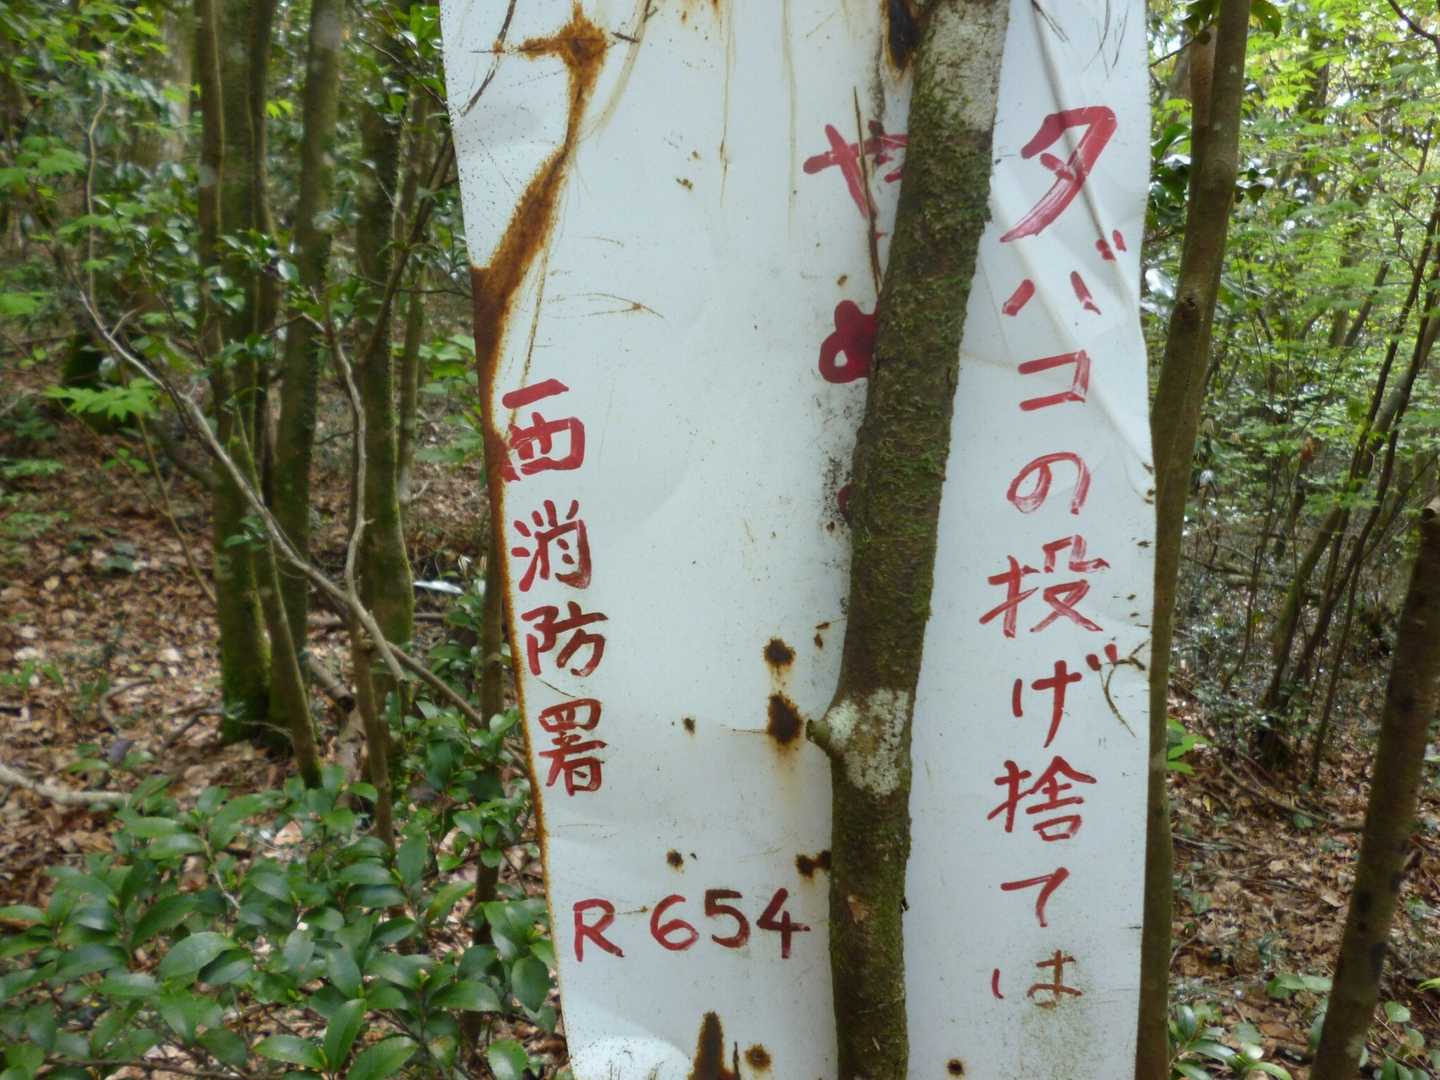 タバコの投げ捨ては
やめ
西消防署
R654